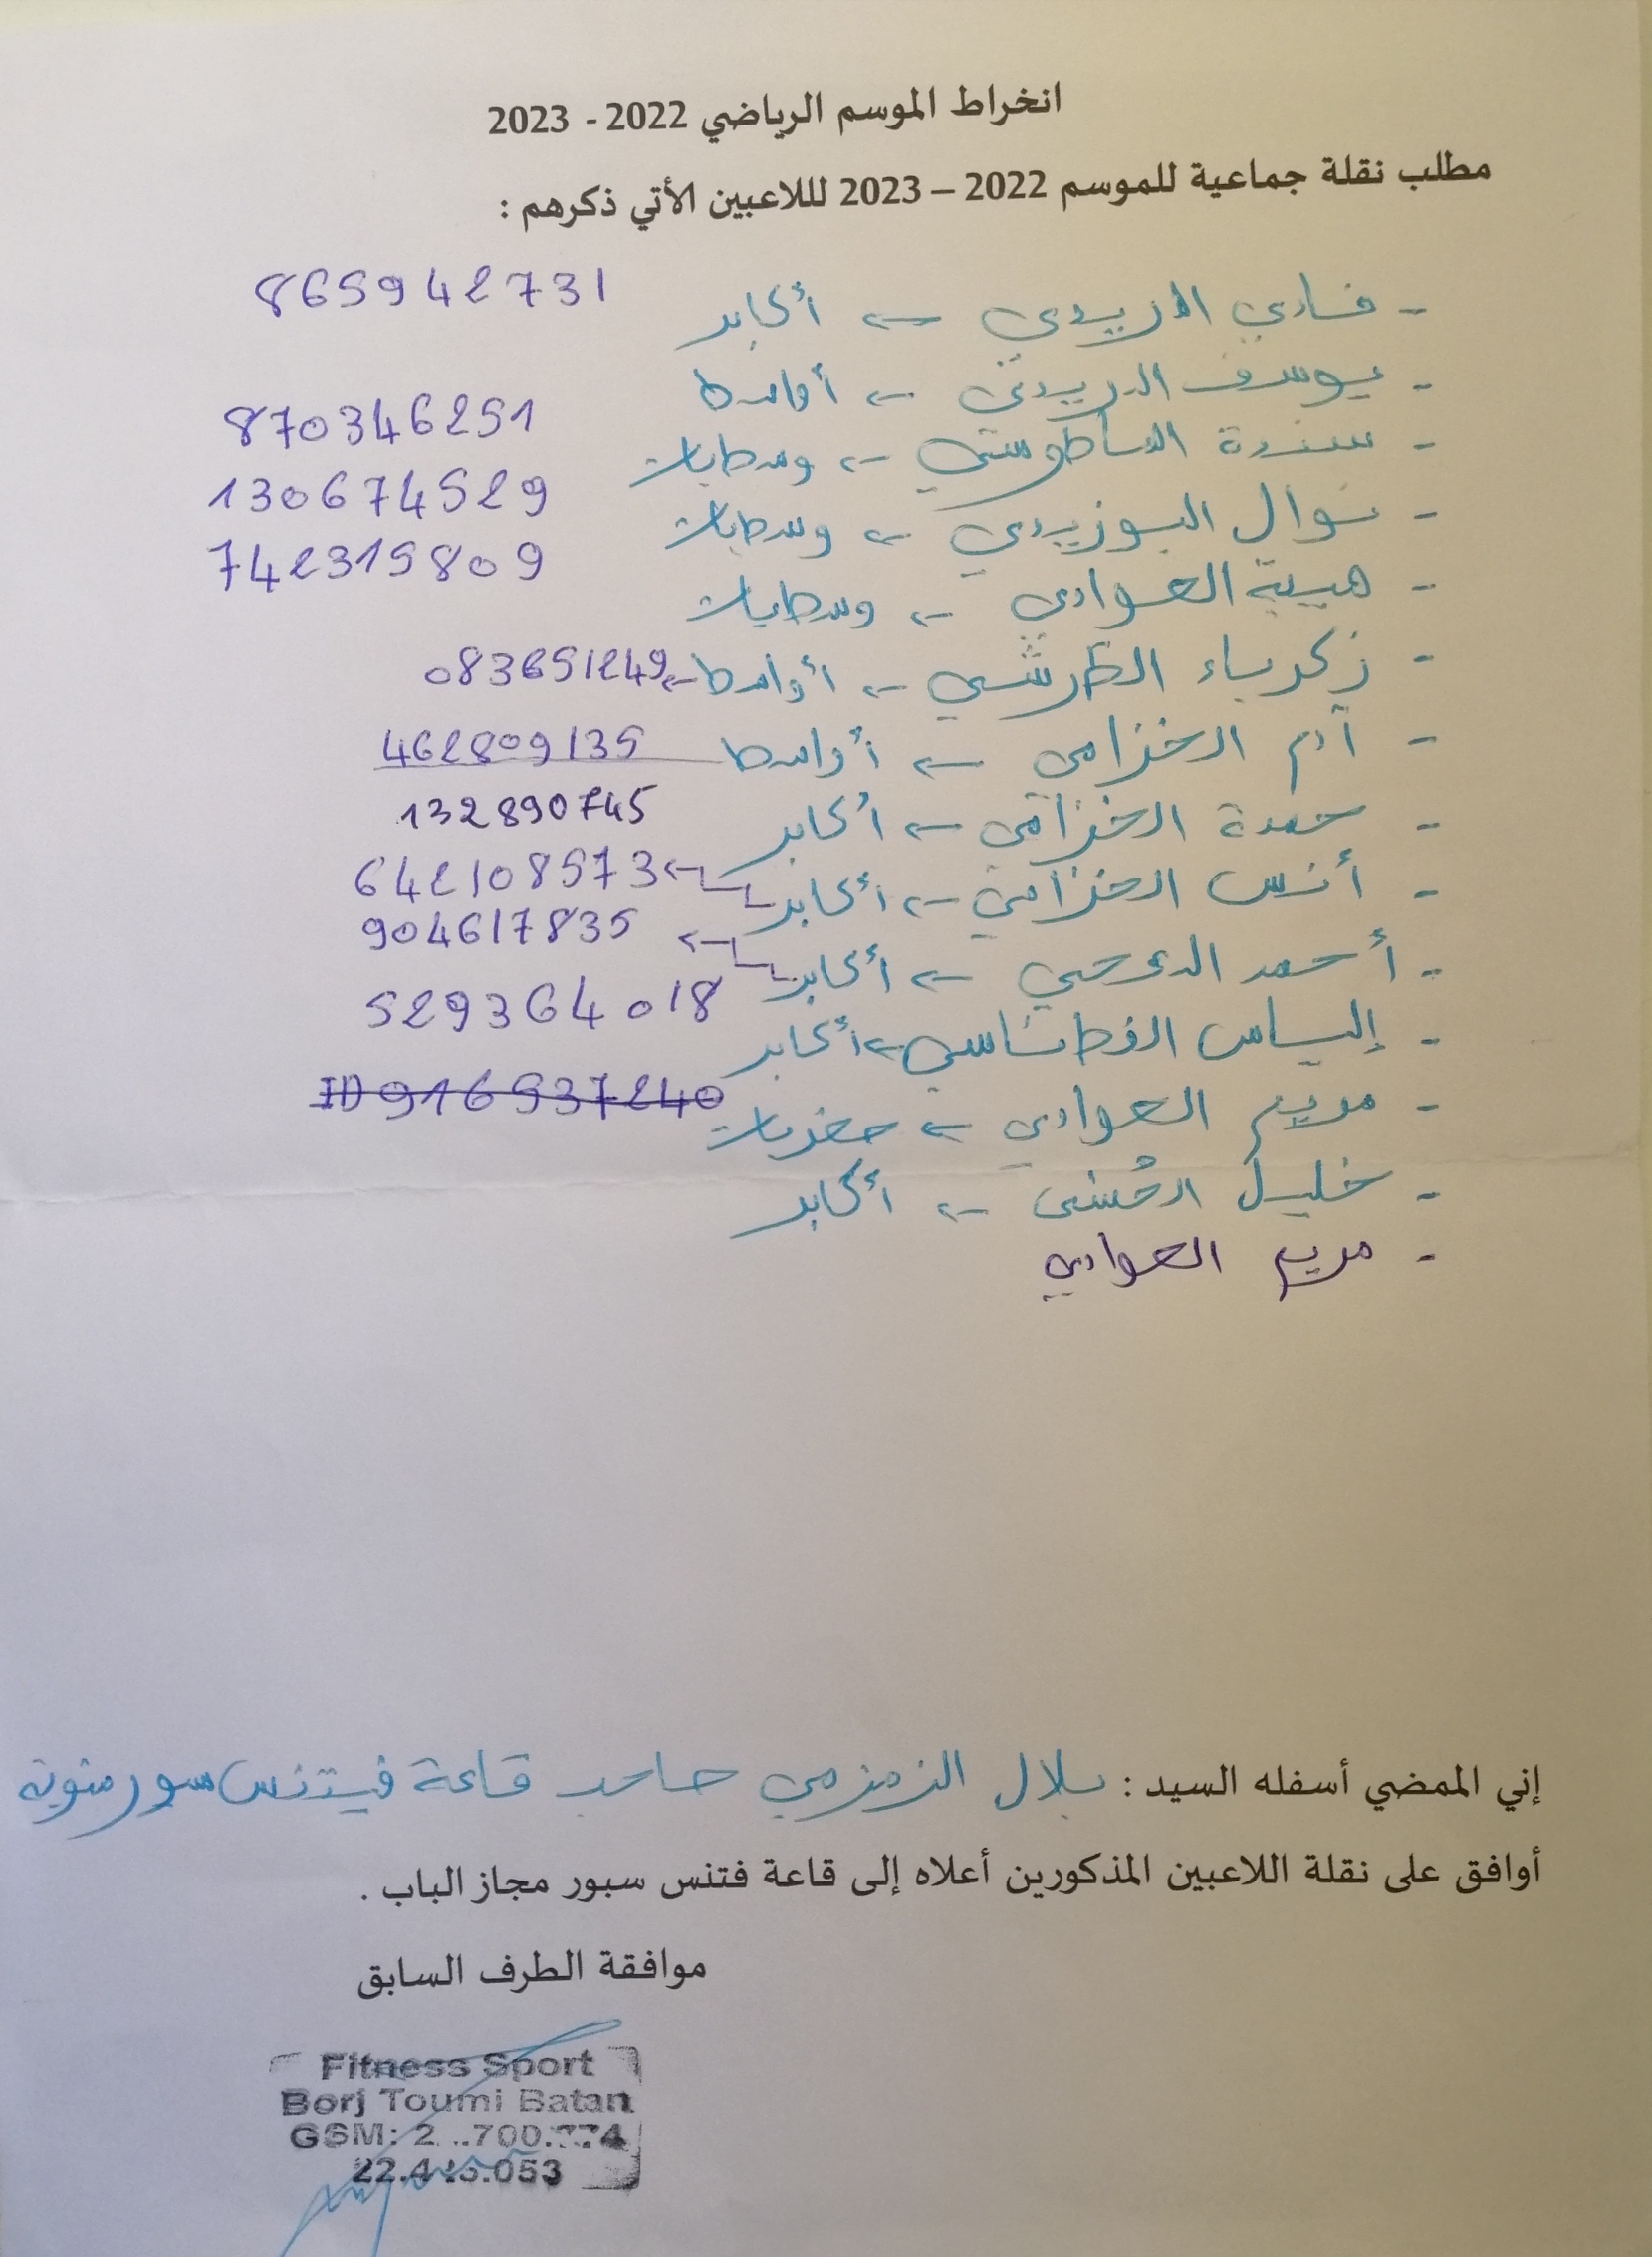 انخراط الموسم الرياضي 2022 - 2023
مطلب نقلة جماعية للموسم 2022 – 2023 لللاعبين الأتي ذكرهم :
- فادي الدريدي -> أكابر 865942731
- يوسف الدريدي -> أواسط
- سندة الساطوستي -> وسطيات 870346251
- نوال البوزيدي -> وسطيات 130674529
- هيبة العوادي -> وسطيات 742315809
- زكرياء الطرشي -> أواسط -> 083651249
- آدم الخزامي -> أواسط 462809135
- حمدة الخزامي -> أكابر 132890745
- أنس الخزامي -> أكابر -> 642108573
- أحمد الدعجي -> أكابر -> 904617835
- إلياس الفطناسي -> أكابر 529364018
- مريم العوادي -> صغريات ID 916537240
- خليل -> أكابر
- مريم العوادي
إني الممضي أسفله السيد : بلال الزمزمي صاحب قاعة فيتنس سبور منوبة
أوافق على نقلة اللاعبين المذكورين أعلاه إلى قاعة فتنس سبور مجاز الباب .
موافقة الطرف السابق
Fitness Sport
Borj Toumi Batan
GSM: